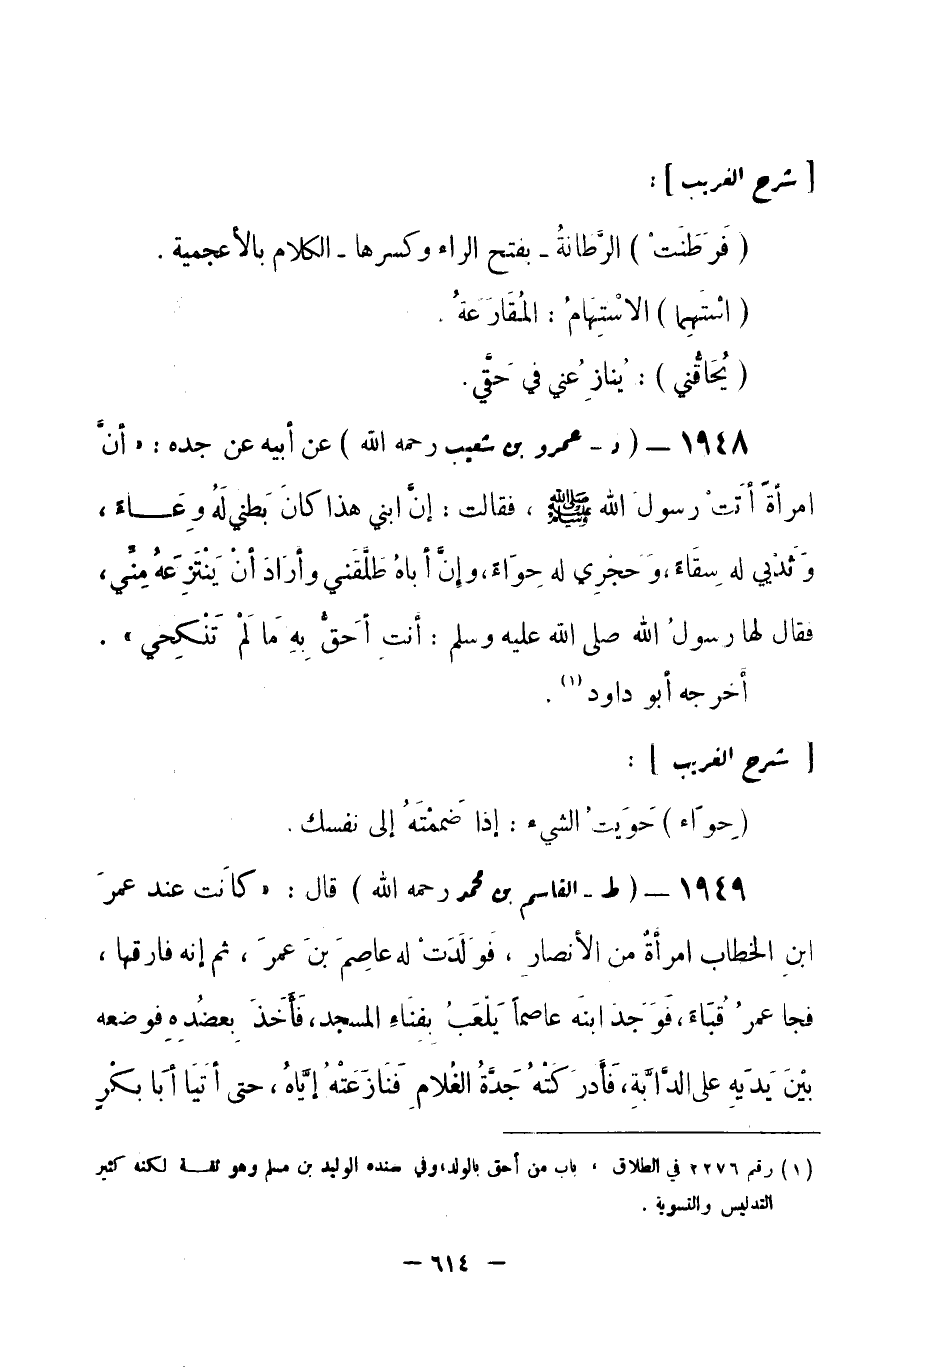 [ شرح الغريب ] :
( فَرَطَنَتْ ) الرَّطَانَةُ ـ بفتح الراء وكسرها ـ الكلام بالأعجمية .
( اسْتَهِما ) الاسْتِهَامُ : المُقَارَعَةُ .
( يُحَاقُّني ) : يُنازِعُني في حَقِّي .
١٩٤٨ — ( د - عمرو بن شعيب رحمه الله ) عن أبيه عن جده : « أنَّ
امرأةً أَتَتْ رسولَ الله ﷺ ، فقالت : إنَّ ابني هذا كانَ بَطني لَهُ وِعَـــاءً ،
وَثَدْيي له سِقَاءً ، وَحَجْرِي له حِوَاءً ، وإنَّ أباهُ طَلَّقَني وأرَادَ أنْ يَنْتَزِعَهُ مِنِّي ،
فقال لها رسولُ الله صلى الله عليه وسلم : أنتِ أَحَقُّ بِهِ مَا لَمْ تَنْكِحي » .
أخرجه أبو داود (١) .
[ شرح الغريب ] :
( حِوَاء ) حَوَيتُ الشيء : إذا ضَمَمْتَهُ إلى نفسك .
١٩٤٩ — ( ط - القاسم بن محمد رحمه الله ) قال : « كانَت عند عمرَ
ابنِ الخطاب امرأةٌ من الأنصارِ ، فَوَلَدَتْ له عاصِمَ بنَ عمرَ ، ثم إنه فارقها ،
فجا عمرُ قُبَاءَ ، فَوَجَدَ ابنَه عاصماً يَلْعَبُ بِفِنَاءِ المسجد ، فَأَخَذَ بِعضُدِهِ فوضعه
بيْنَ يَديَهِ على الدَّابَّةِ ، فَأَدرَكَتْهُ جَدَّةُ الغُلامِ فَنَازَعَتْهُ إيَّاهُ ، حتى أَتَيَا أبَا بكْرٍ
(١) رقم ٢٢٧٦ في الطلاق ، باب من أحق بالولد ، وفي سنده الوليد بن مسلم وهو ثقـــة لكنه كثير
التدليس والتسوية .
— ٦١٤ —